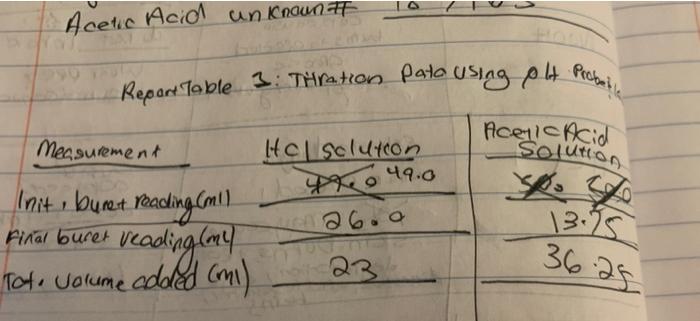 Acetic Acid unknown #
Report Table 3: Titration Data using pH Probe
Measurement HCl solution Acetic Acid Solution
Init. buret reading (ml) 49.0
Final buret reading (ml) 26.0 13.75
Tot. volume added (ml) 23 36.25